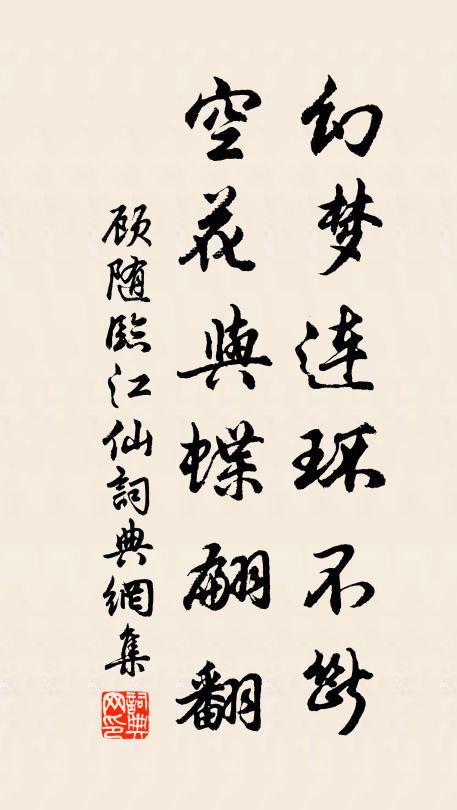 幻梦连环不断
空花與蝶翩翻
顾随臨江仙詞典網集
詞典网印